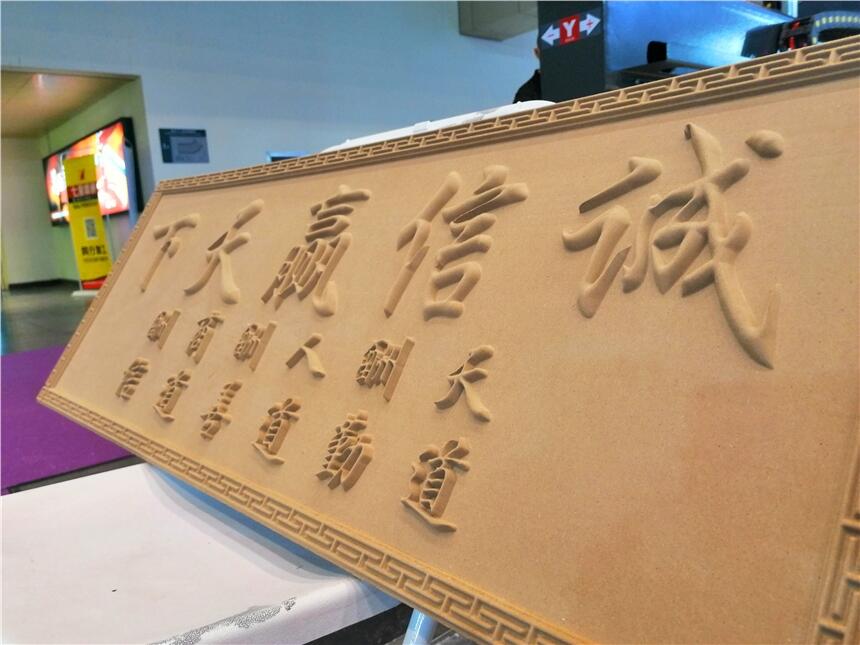 诚信赢天下
天道酬勤人道酬善商道酬信
Y